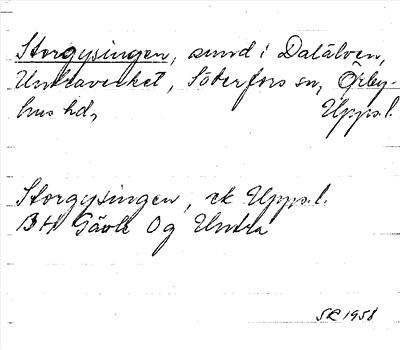 Storgysingen, sund i Dalälven,
Untraverket, Söderfors sn, Örby-
hus hd, Upps.l.
Storgysingen, ek Upps.l.
BH Gävle Og Untra
SR 1958